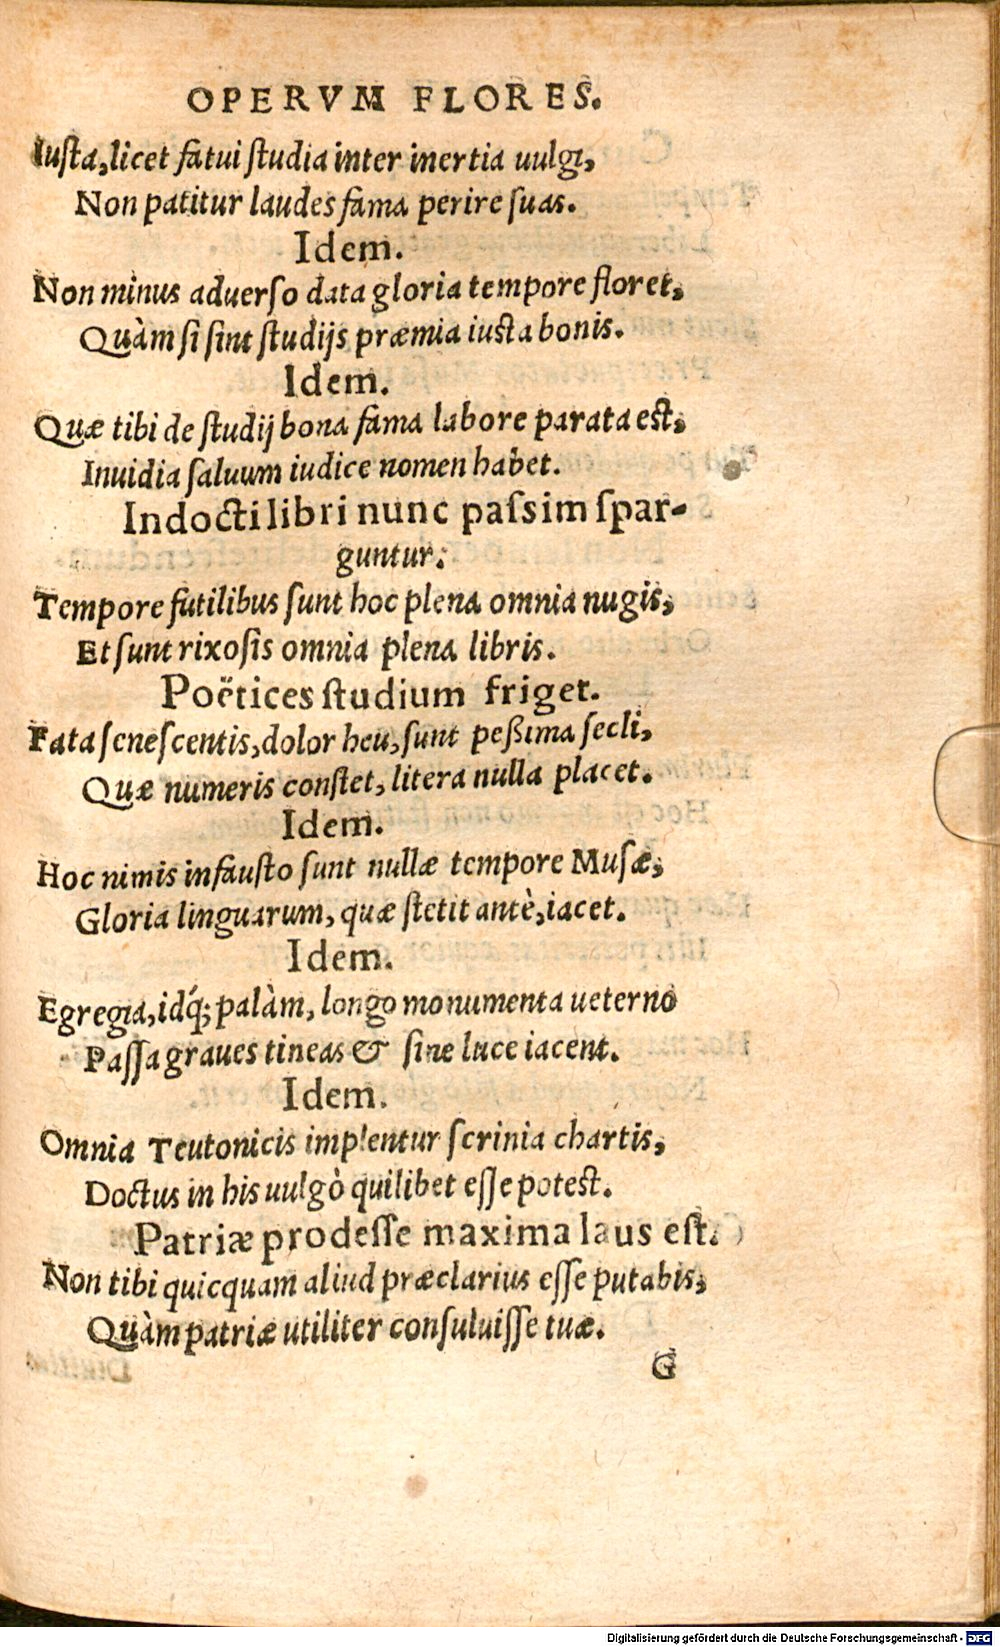 OPERVM FLORES.
Iusta, licet fatui studia inter inertia uulgi,
Non patitur laudes fama perire suas.
Idem.
Non minus aduerso data gloria tempore floret,
Quàm si sint studijs præmia iusta bonis.
Idem.
Quæ tibi de studij bona fama labore parata est,
Inuidia saluum iudice nomen habet.
Indocti libri nunc passim spar-
guntur.
Tempore futilibus sunt hoc plena omnia nugis,
Et sunt rixosis omnia plena libris.
Poëtices studium friget.
Fata senescentis, dolor heu, sunt peßima secli,
Quæ numeris constet, litera nulla placet.
Idem.
Hoc nimis infausto sunt nullæ tempore Musæ,
Gloria linguarum, quæ stetit antè, iacet.
Idem.
Egregia, idq́; palàm, longo monumenta ueterno
Passa graues tineas & sine luce iacent.
Idem.
Omnia Teutonicis implentur scrinia chartis,
Doctus in his uulgò quilibet esse potest.
Patriæ prodesse maxima laus est.
Non tibi quicquam aliud præclarius esse putabis,
Quàm patriæ utiliter consuluisse tuæ.
G
Digitalisierung gefördert durch die Deutsche Forschungsgemeinschaft - DFG